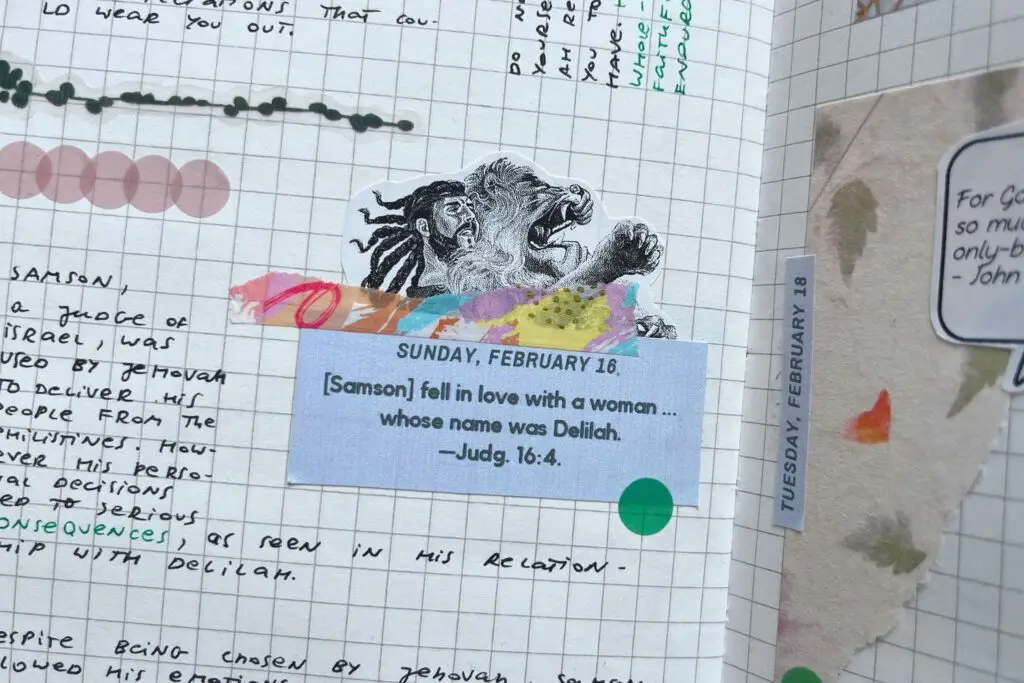 THAT COU-
LD WEAR YOU OUT.
DO
YOURSE
AH RE
YOU TO
HAVE.
WHOLE -
FAITHF
ENDURO
SAMSON,
a JUDGE OF
ISRAEL, WAS
USED BY JEHOVAH
TO DELIVER HIS
PEOPLE FROM THE
PHILISTINES. HOW-
EVER HIS PERSO-
NAL DECISIONS
LED TO SERIOUS
CONSEQUENCES, AS SEEN IN HIS RELATION-
SHIP WITH DELILAH.
SUNDAY, FEBRUARY 16.
[Samson] fell in love with a woman ...
whose name was Delilah.
—Judg. 16:4.
ESPITE BEING CHOSEN BY JEHOVAH, SAMSON
LLOWED HIS EMOTIONS
TUESDAY, FEBRUARY 18
For Go
so muc
only-b
- John